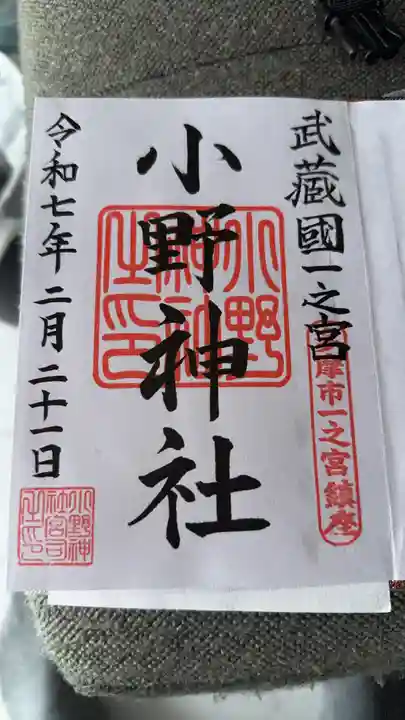 武蔵國一之宮
摩市一之宮鎮座
小野神社
小野神社之印
令和七年二月二十一日
小野神社宮司之印